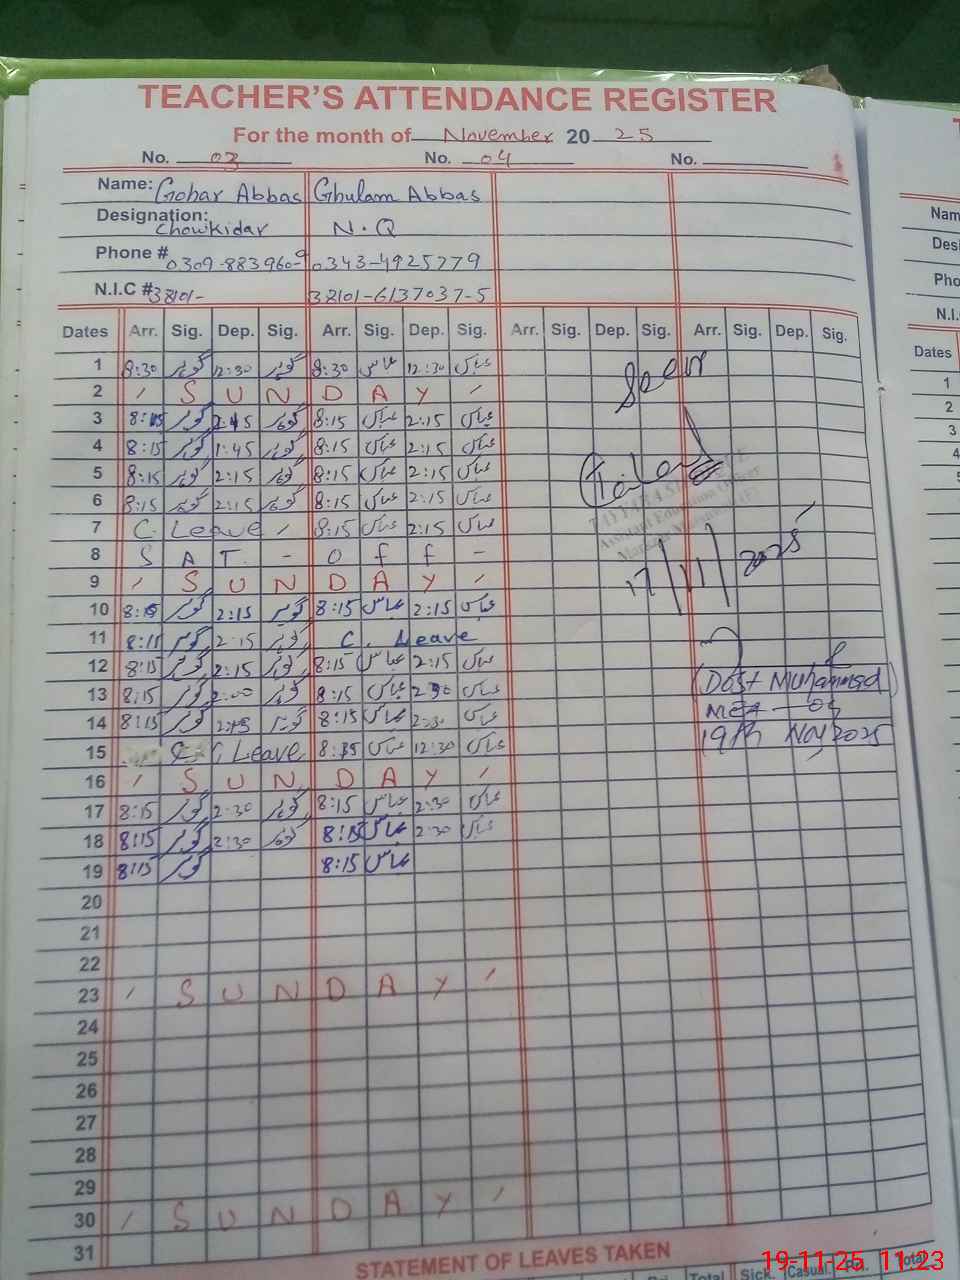 TEACHER'S ATTENDANCE REGISTER
For the month of November 20 25
No. 03 No. 04 No.
Name: Gohar Abbas Ghulam Abbas
Designation: Chowkidar N.Q
Phone # 0309-8839609 0343-4925779
N.I.C # 38101- 38101-6137037-5
Dates Arr. Sig. Dep. Sig. Arr. Sig. Dep. Sig. Arr. Sig. Dep. Sig. Arr. Sig. Dep. Sig.
1 8:30 گوہر 12:30 گوہر 8:30 عباس 12:30 عباس
2 S U N D A Y
3 8:15 گوہر 2:45 گوہر 8:15 عباس 2:15 عباس
4 8:15 گوہر 1:45 گوہر 8:15 عباس 2:15 عباس
5 8:15 گوہر 2:15 گوہر 8:15 عباس 2:15 عباس
6 8:15 گوہر 2:15 گوہر 8:15 عباس 2:15 عباس
7 C. Leave 8:15 عباس 2:15 عباس
8 S A T. - O f f -
9 S U N D A Y
10 8:15 گوہر 2:15 گوہر 8:15 عباس 2:15 عباس
11 8:15 گوہر 2:15 گوہر C. Leave
12 8:15 گوہر 2:15 گوہر 8:15 عباس 2:15 عباس
13 8:15 گوہر 2:00 گوہر 8:15 عباس 2:30 عباس
14 8:15 گوہر 2:15 گوہر 8:15 عباس 2:30 عباس
15 C. Leave 8:15 عباس 12:30 عباس
16 S U N D A Y
17 8:15 گوہر 2:30 گوہر 8:15 عباس 2:30 عباس
18 8:15 گوہر 2:30 گوہر 8:15 عباس 2:30 عباس
19 8:15 گوہر 8:15 عباس
20
21
22
23 S U N D A Y
24
25
26
27
28
29
30 S U N D A Y
31
Seen
Assistant Education Officer
17/11/2025
(Dost Muhammad)
MEA
19th Nov 2025
STATEMENT OF LEAVES TAKEN
Total Sick. Casual. Total
19-11-25 11:23
Dates
1
2
3
4
5